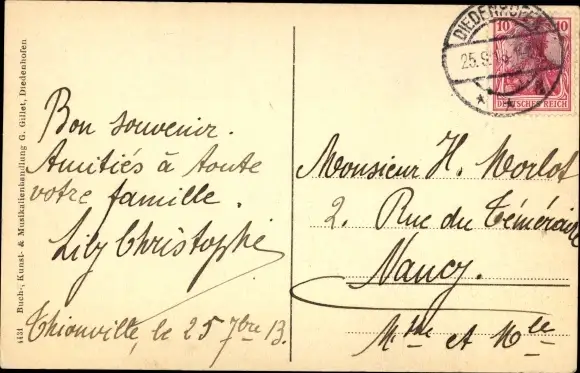 Bon souvenir.
Amitiés à toute
votre famille.
Lily Christophe
Thionville, le 25 7bre 13.
Monsieur H. Morlot
2. Rue du Téméraire
Nancy.
Mme et Mlle
DIEDENHOFEN
25.9.
10 10
DEUTSCHES REICH
4431 Buch-, Kunst- & Musikalienhandlung G. Gillet, Diedenhofen